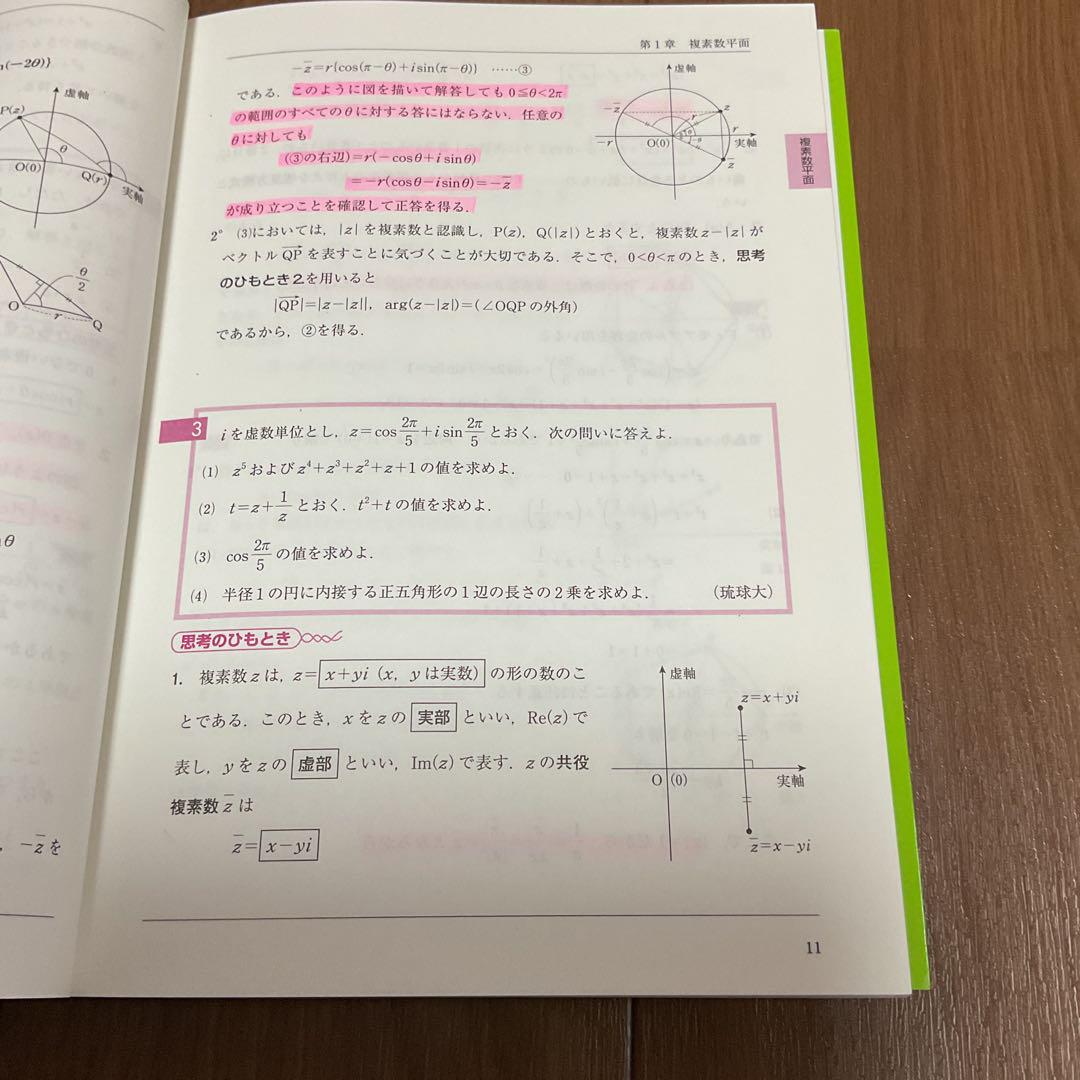 n(−2θ)}
虚軸
P(z)
θ
O(0)
Q(r)
実軸
θ/2
O
r
Q
nθ
, −z̅を
第1章 複素数平面
−z̅=r{cos(π−θ)+isin(π−θ)} ……③
である．このように図を描いて解答しても 0≦θ<2π
の範囲のすべてのθに対する答にはならない．任意の
θに対しても
(③の右辺)=r(−cosθ+isinθ)
=−r(cosθ−isinθ)=−z̅
が成り立つことを確認して正答を得る．
虚軸
−z̅
z
r
θ
−θ
−r
O(0)
r
実軸
z̅
複素数平面
2° (3)においては，|z|を複素数と認識し，P(z)，Q(|z|)とおくと，複素数z−|z|が
ベクトル QP→ を表すことに気づくことが大切である．そこで，0<θ<πのとき，思考
のひもとき2.を用いると
|QP→|=|z−|z||，arg(z−|z|)=(∠OQPの外角)
であるから，②を得る．
3 iを虚数単位とし，z=cos 2π/5 +isin 2π/5 とおく．次の問いに答えよ．
(1) z⁵およびz⁴+z³+z²+z+1の値を求めよ．
(2) t=z+1/z とおく．t²+tの値を求めよ．
(3) cos 2π/5 の値を求めよ．
(4) 半径1の円に内接する正五角形の1辺の長さの2乗を求めよ． (琉球大)
思考のひもとき
1. 複素数zは，z= x+yi (x，yは実数) の形の数のこ
とである．このとき，xをzの 実部 といい，Re(z)で
表し，yをzの 虚部 といい，Im(z)で表す．zの共役
複素数z̅は
z̅= x−yi
虚軸
z=x+yi
O
(0)
実軸
z̅=x−yi
11